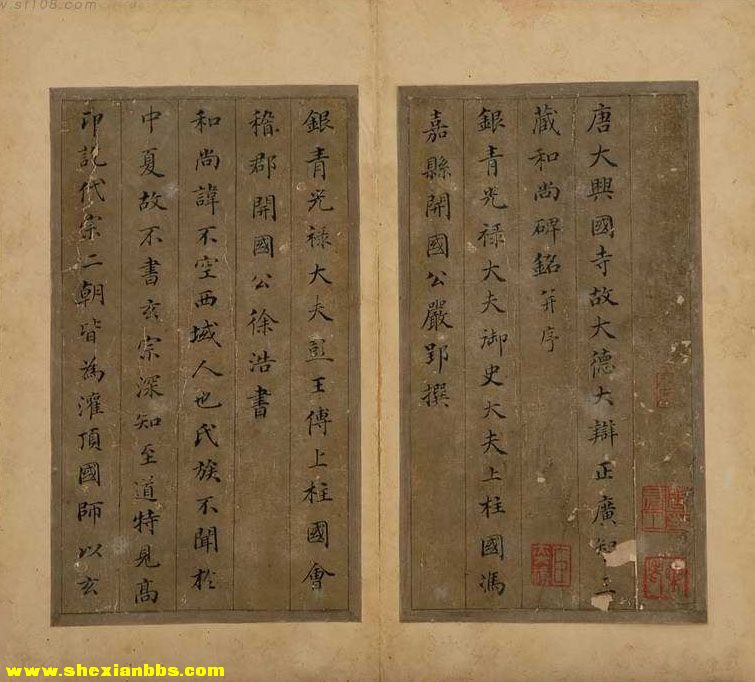 www.sf108.com
唐大興國寺故大德大辯正廣知三
藏和尚碑銘并序
銀青光禄大夫御史大夫上柱國馮
嘉縣開國公嚴郢撰
銀青光禄大夫彭王傅上柱國會
稽郡開國公徐浩書
和尚諱不空西域人也氏族不聞於
中夏故不書玄宗深知至道特見高
印訖代宗二朝皆為灌頂國師以玄
www.shexianbbs.com